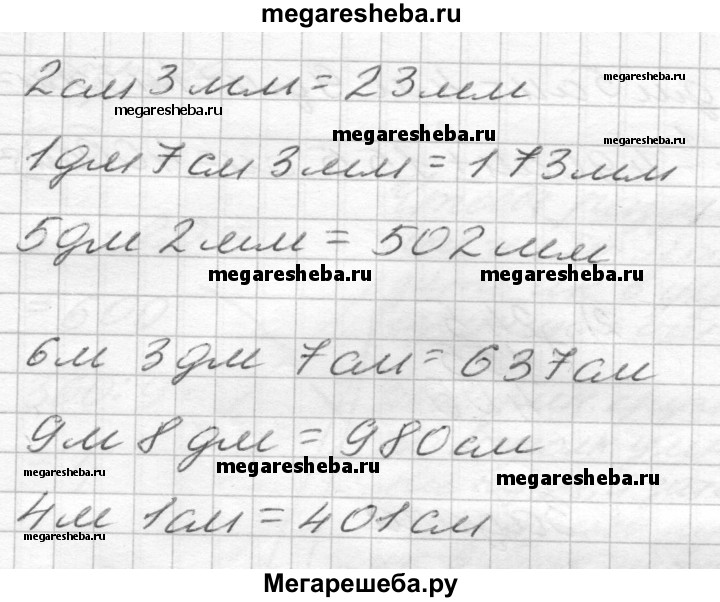 megaresheba.ru
2 см 3 мм = 23 мм
megaresheba.ru
megaresheba.ru
megaresheba.ru
megaresheba.ru
1 дм 7 см 3 мм = 173 мм
5 дм 2 мм = 502 мм
megaresheba.ru
megaresheba.ru
6 м 3 дм 7 см = 637 см
9 м 8 дм = 980 см
megaresheba.ru
megaresheba.ru
megaresheba.ru
4 м 1 см = 401 см
megaresheba.ru
Мегарешеба.ру